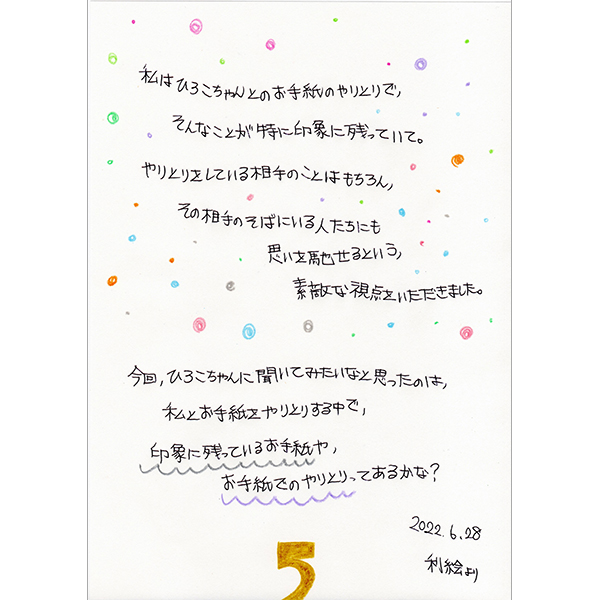 私はひろこちゃんとのお手紙のやりとりで,
そんなことが特に印象に残っていて。
やりとりをしている相手のことはもちろん,
その相手のそばにいる人たちにも
思いを馳せるという,
素敵な視点をいただきました。
今回,ひろこちゃんに聞いてみたいなと思ったのは,
私とお手紙をやりとりする中で,
印象に残っているお手紙や,
お手紙でのやりとりってあるかな?
2022.6.28
利絵より
5